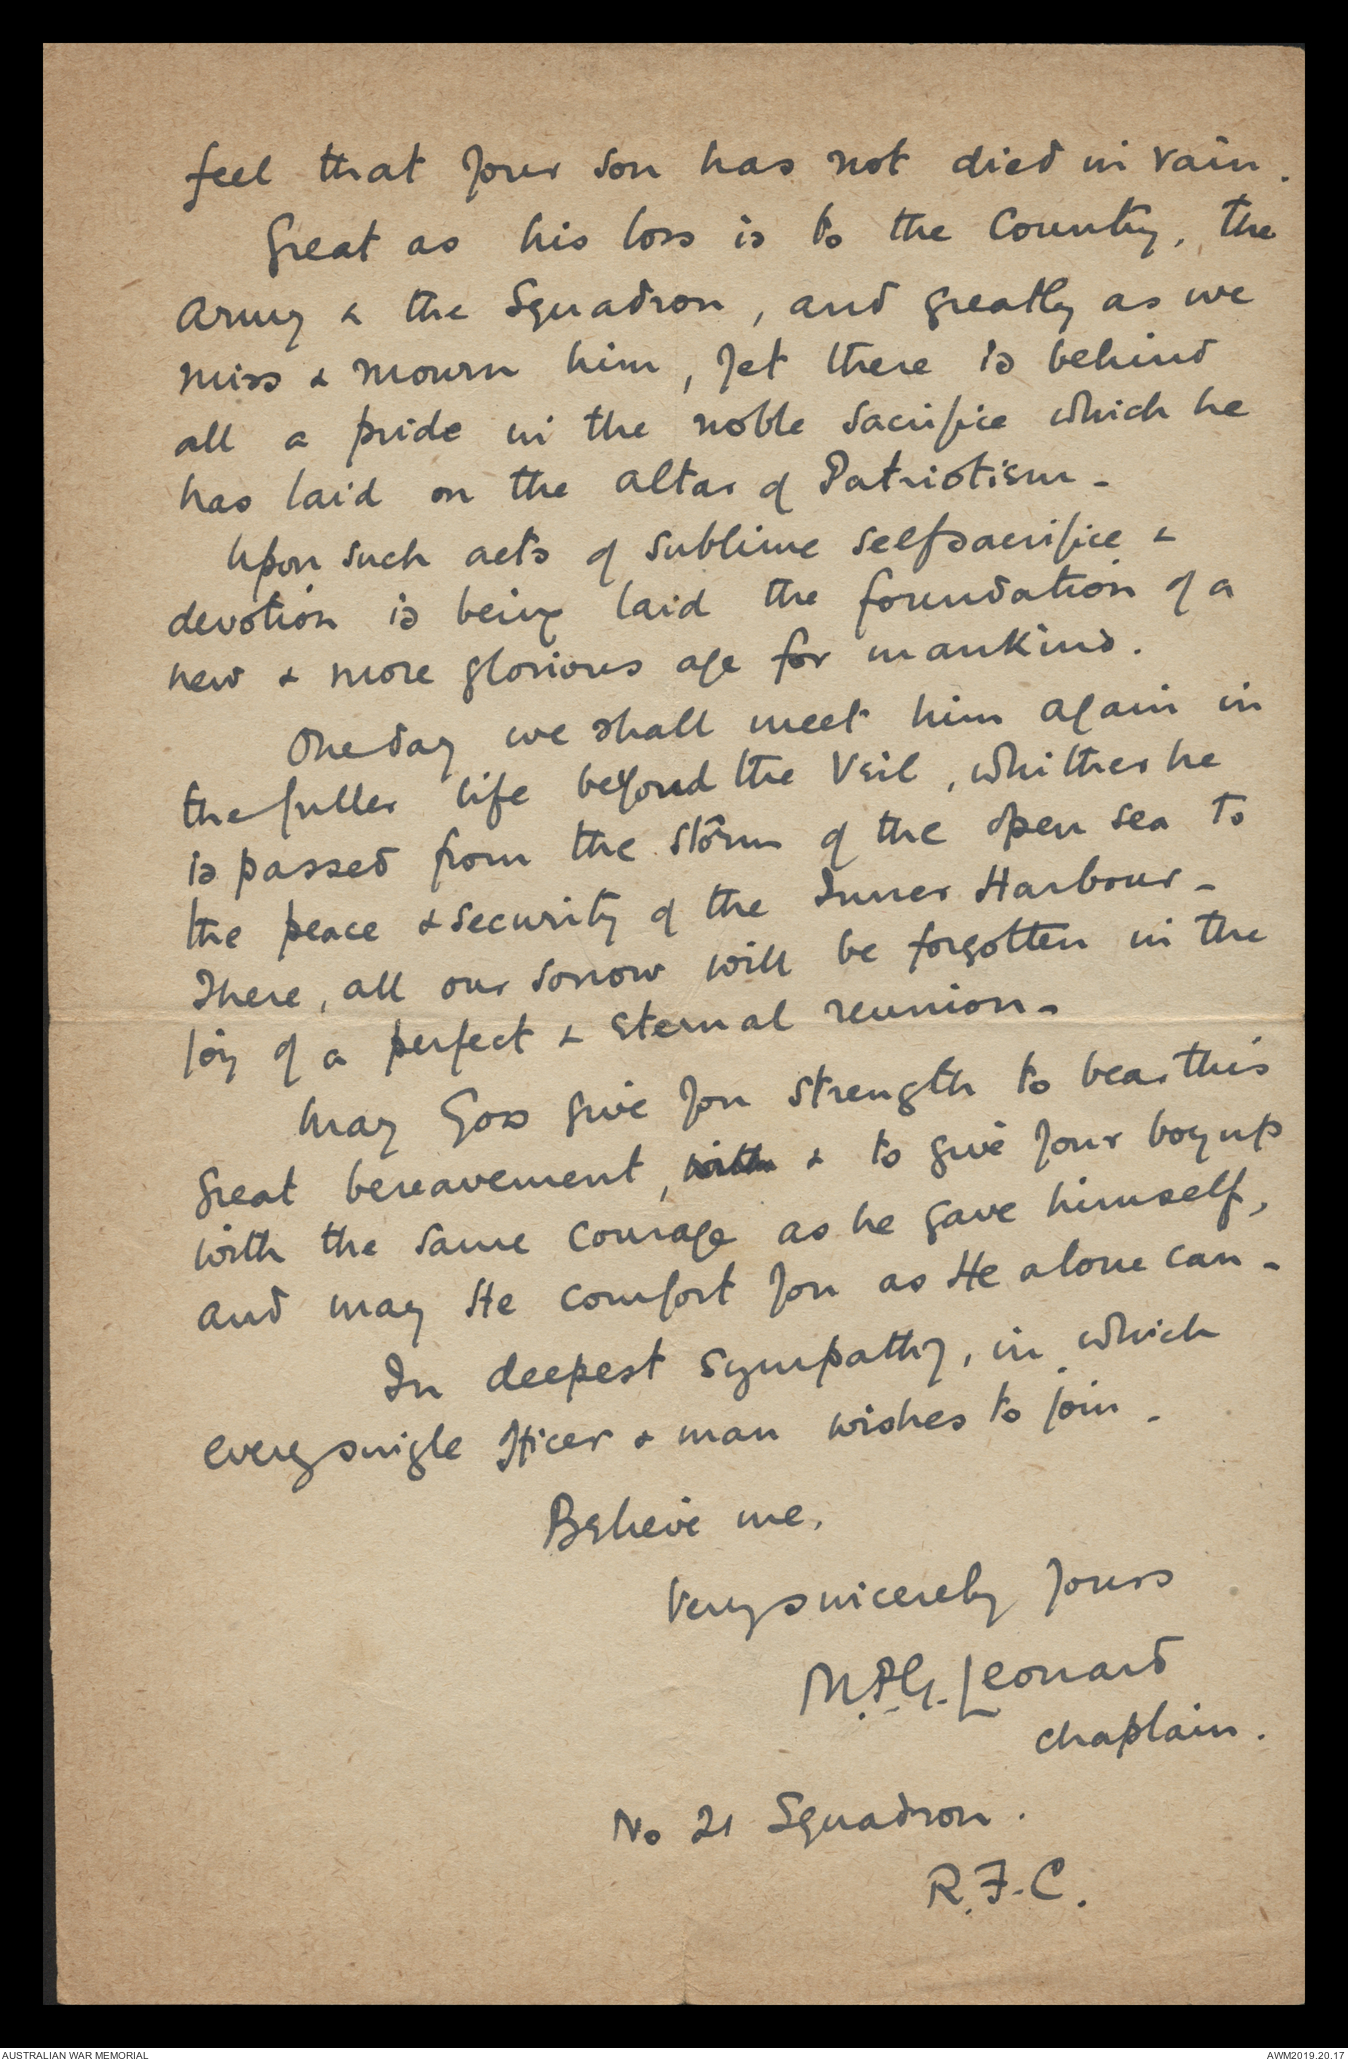 feel that your son has not died in vain.
Great as his loss is to the Country, the
Army & the Squadron, and greatly as we
miss & mourn him, yet there is behind
all a pride in the noble sacrifice which he
has laid on the altar of Patriotism -
Upon such acts of sublime selfsacrifice &
devotion is being laid the foundation of a
new & more glorious age for mankind.
One day we shall meet him again in
the fuller life beyond the Veil, whither he
is passed from the storm of the open sea to
the peace & security of the Inner Harbour -
There, all our sorrow will be forgotten in the
joy of a perfect & eternal reunion -
May God give you strength to bear this
great bereavement, with & to give your boy up
with the same courage as he gave himself,
and may He comfort you as He alone can -
In deepest sympathy, in which
every single officer & man wishes to join -
Believe me,
Very sincerely yours
M.P.G. Leonard
Chaplain.
No 21 Squadron.
R.F.C.
AUSTRALIAN WAR MEMORIAL
AWM2019.20.17